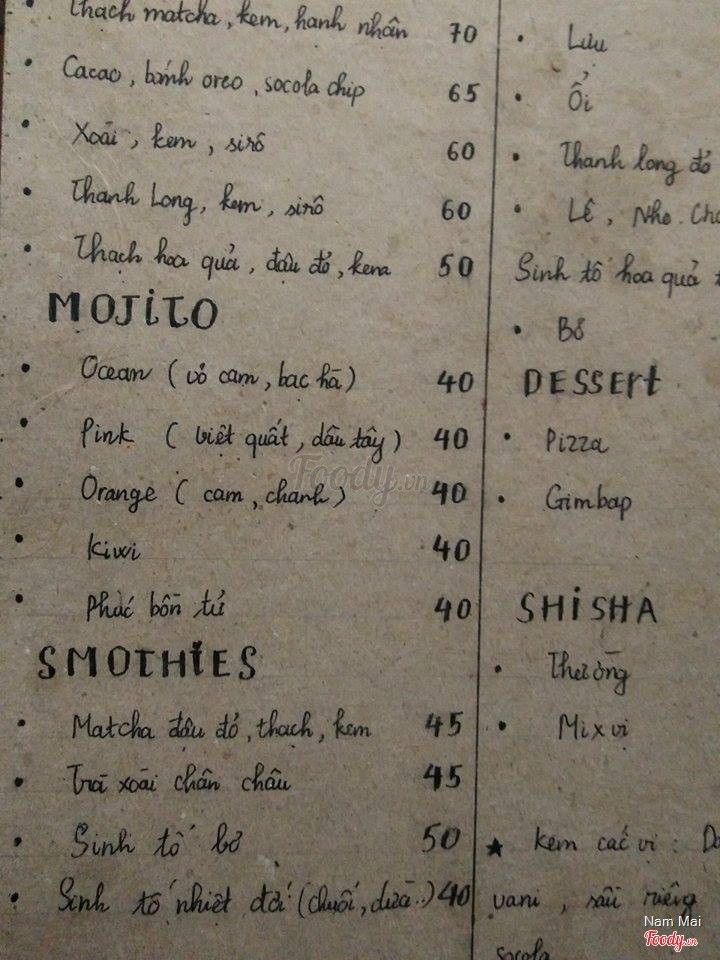 Thạch matcha, kem, hạnh nhân 70
Cacao, bánh oreo, socola chip 65
Xoài, kem, sirô 60
Thanh Long, kem, sirô 60
Thạch hoa quả, đậu đỏ, kem 50
MOJITO
Ocean (vỏ cam, bạc hà) 40
Pink (việt quất, dâu tây) 40
Orange (cam, chanh) 40
Kiwi 40
Phúc bồn tử 40
SMOTHIES
Matcha đậu đỏ, thạch, kem 45
Trà xoài chân châu 45
Sinh tố bơ 50
Sinh tố nhiệt đới (chuối, dừa..) 40
Lựu
Ổi
Thanh long đỏ
Lê, Nho
Sinh tố hoa quả
Bơ
DESSERT
Pizza
Gimbap
SHISHA
Thường
Mix vị
★ Kem các vị :
vani, sầu riêng
socola
Foody.vn
Nam Mai
Foody.vn